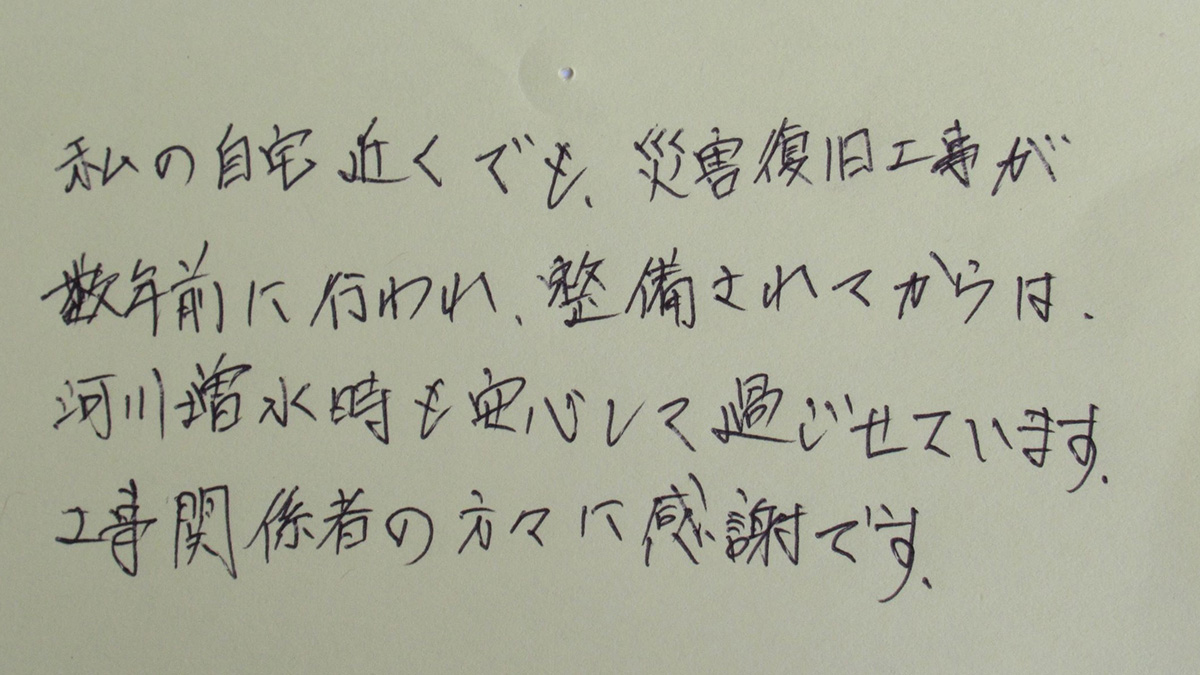 私の自宅近くでも、災害復旧工事が
数年前に行われ、整備されてからは、
河川増水時も安心して過ごせています。
工事関係者の方々に感謝です。